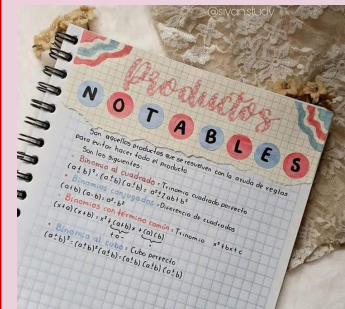 @siyan.study
Productos
NOTABLES
Son aquellos productos que se resuelven con la ayuda de reglas
para evitar hacer todo el producto.
Son los siguientes:
• Binomio al cuadrado = Trinomio cuadrado perfecto
(a±b)² = (a±b)(a±b) = a²±2ab+b²
• Binomios conjugados = Diferencia de cuadrados
(a+b)(a-b) = a²-b²
• Binomios con término común = Trinomio x²+bx+c
(x+a)(x+b) = x²+(a+b)x+(a)(b)
+ o -
• Binomio al cubo = Cubo perfecto
(a±b)³ = (a±b)²(a±b) = (a±b)(a±b)(a±b)